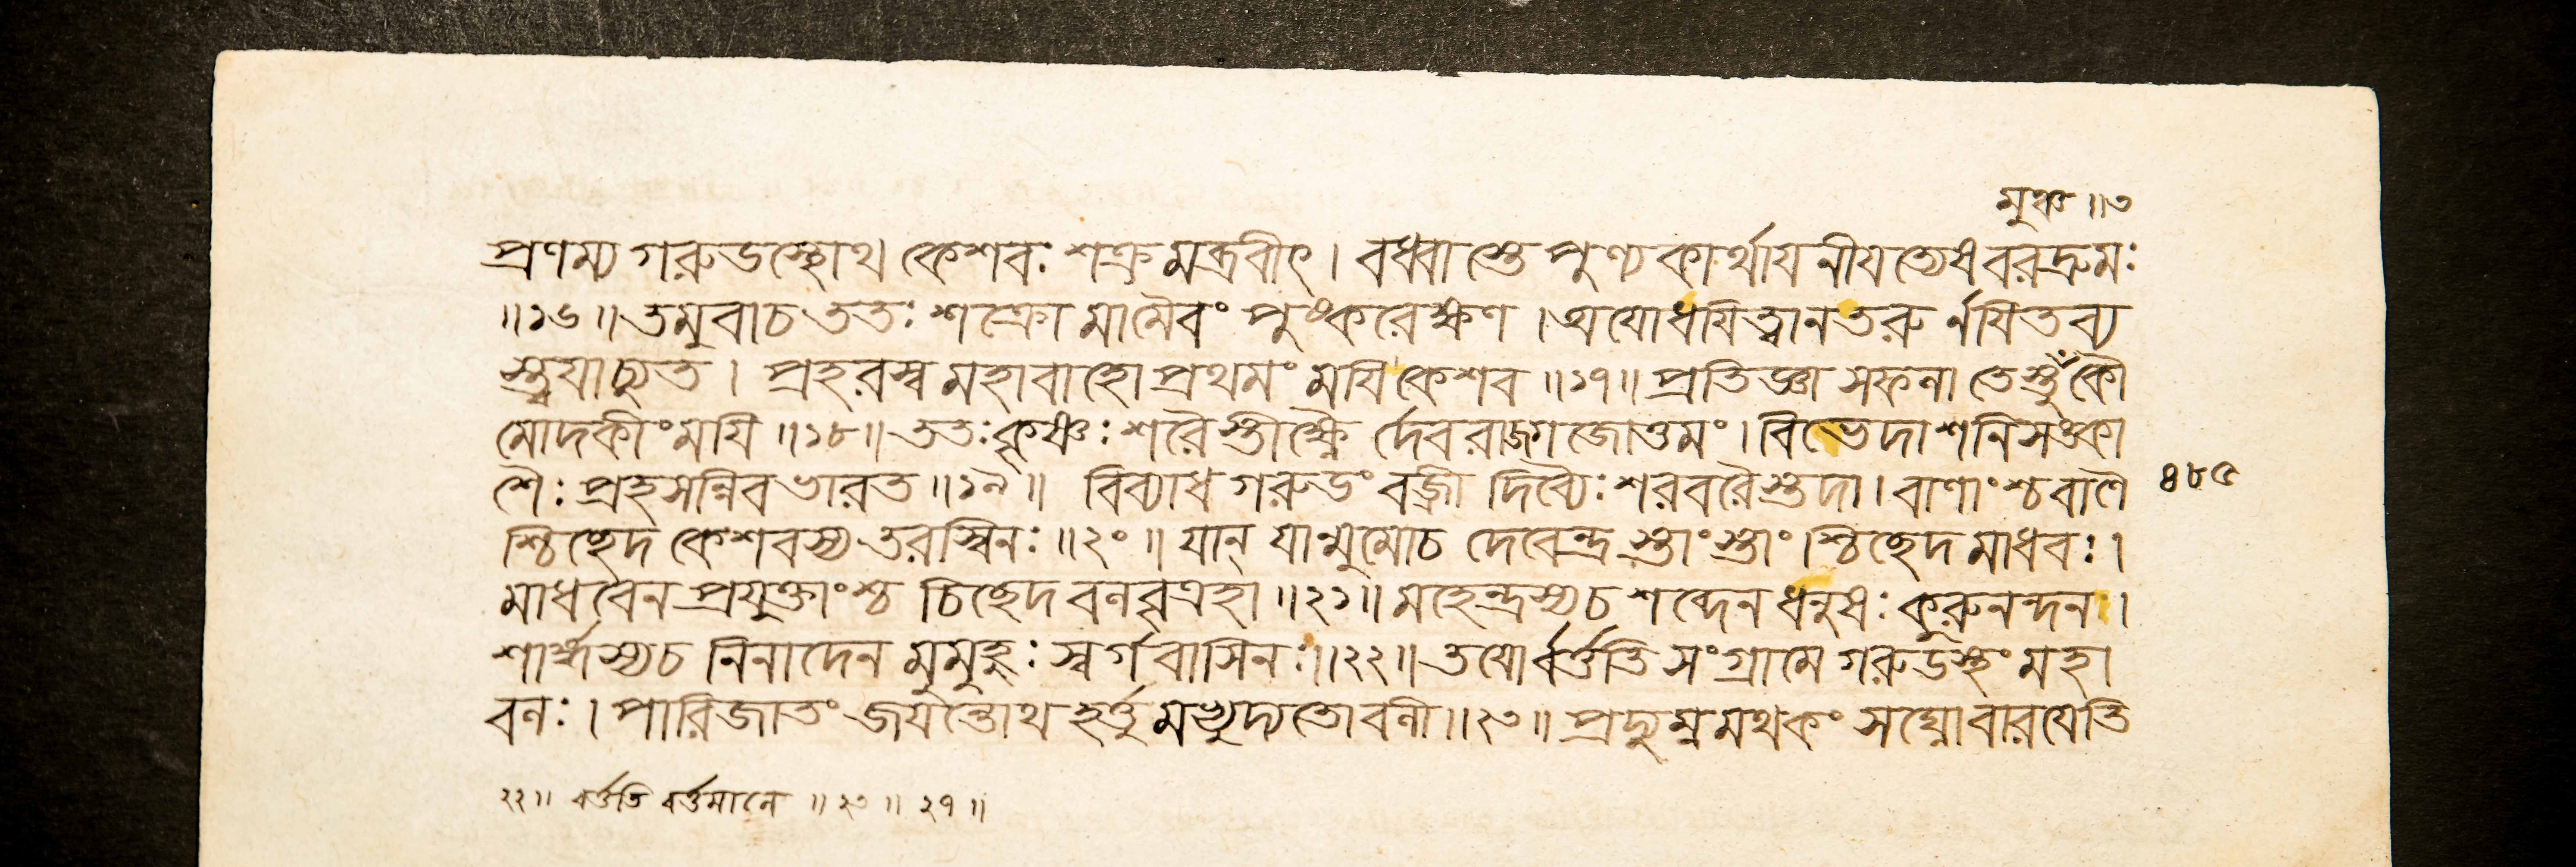 মুঞ্চ ॥৩
প্রণম্য গরুডস্থোথ কেশবঃ শক্রমব্রবীৎ । বধ্বাস্তে পুণ্যকার্থায নীযত্যেষ বরদ্রুমঃ
॥১৬॥ তমুবাচ ততঃ শক্রো মামৈবং পুষ্করেক্ষণ । অযোধযিত্বা ন তরু র্নযিতব্য
স্ত্বযাচ্যুত । প্রহরস্ব মহাবাহো প্রথমং মযি কেশব ॥১৭॥ প্রতিজ্ঞা সফলা তেস্তু কৌ
মোদকীং মযি ॥১৮॥ ততঃ কৃষ্ণঃ শরৈস্তীক্ষ্ণৈ র্দেবরাজ্গজোত্তমং । বিভেদাশনিসঙ্কা
শৈঃ প্রহসন্নিব ভারত ॥১৯॥ বিব্যাধ গরুডং বজ্রী দিব্যৈঃ শরবরৈস্তদা । বাণাংশ্চ বাণৈ
শ্চিচ্ছেদ কেশবস্য তরস্বিনঃ ॥২০॥ যান্ যান্মুমোচ দেবেন্দ্র স্তাংস্তাং।শ্চিচ্ছেদ মাধবঃ ।
মাধবেন প্রযুক্তাংশ্চ চিচ্ছেদ বলবৃত্রহা ॥২১॥ মহেন্দ্রস্য চ শব্দেন ধনুষঃ কুরুনন্দন ।
শার্ঙ্গস্য চ নিনাদেন মুমুহুঃ স্বর্গবাসিনঃ ॥২২॥ তযোর্বর্ত্ততি সংগ্রামে গরুডস্থং মহা
বলঃ । পারিজাতং জযন্তোথ হর্ত্তুমভ্যুদ্যতো বলী ॥২৩॥ প্রদ্যুম্নমথ কং সঘ্নো বারযেতি
৪৮৫
২২॥ বর্ত্ততি বর্ত্তমানে ॥ ২৩ ॥ ২৭ ॥